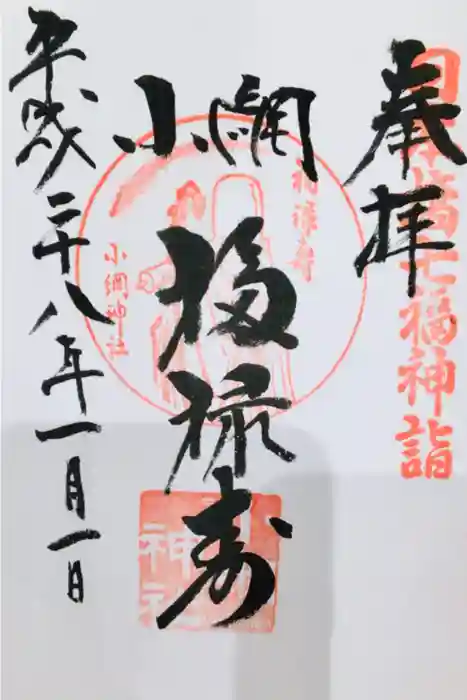 日本橋七福神詣
奉拝
小網
福禄寿
福禄寿
小網神社
小網神社
平成二十八年一月一日